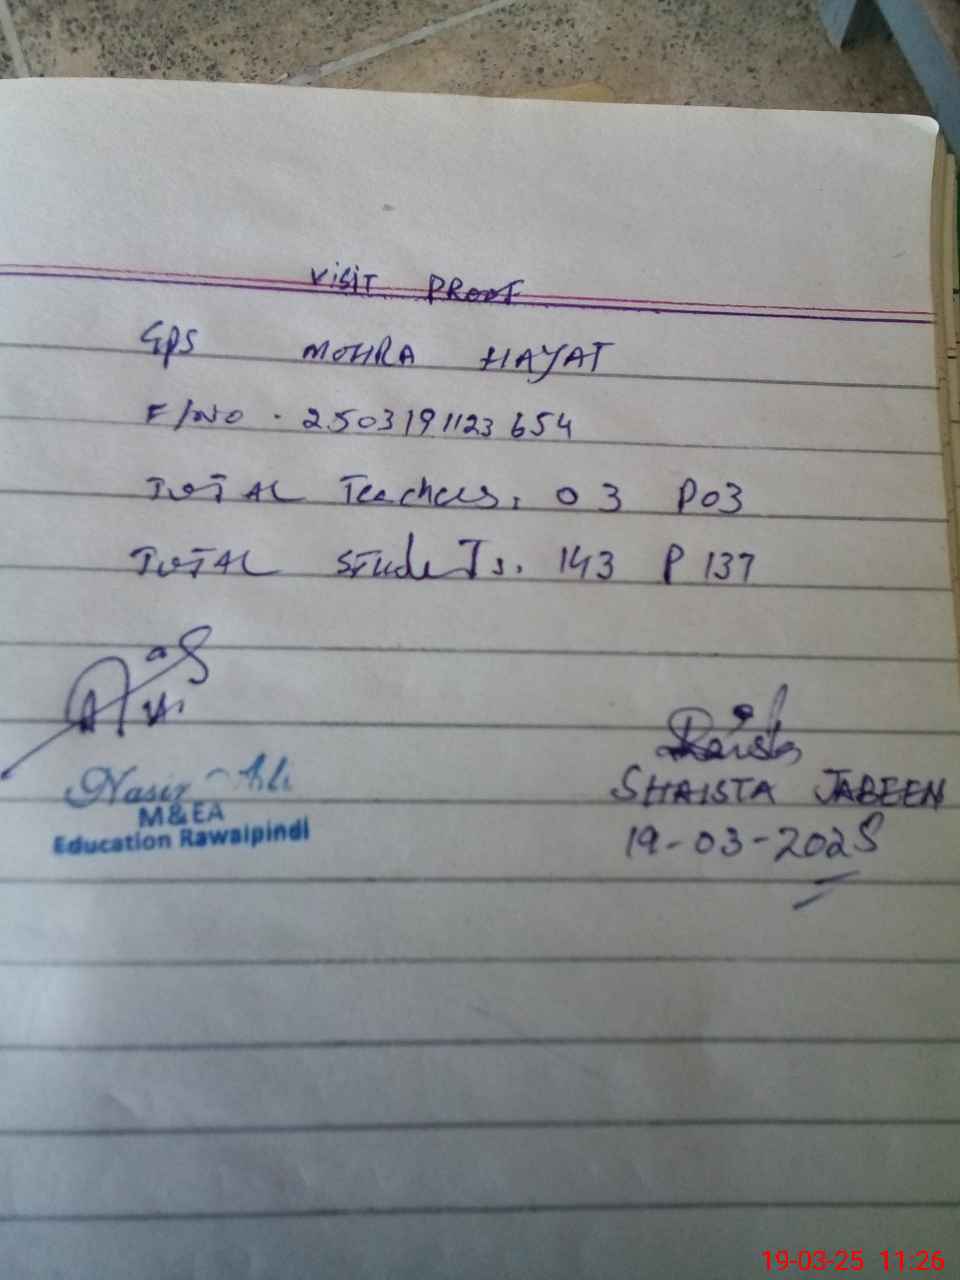 Visit Proof
GPS MOHRA HAYAT
F/NO . 2503191123654
TOTAL Teachers. 03 P03
TOTAL Students. 143 P 137
Nasir Ali
M&EA
Education Rawalpindi
SHAISTA JABEEN
19-03-2025
19-03-25 11:26